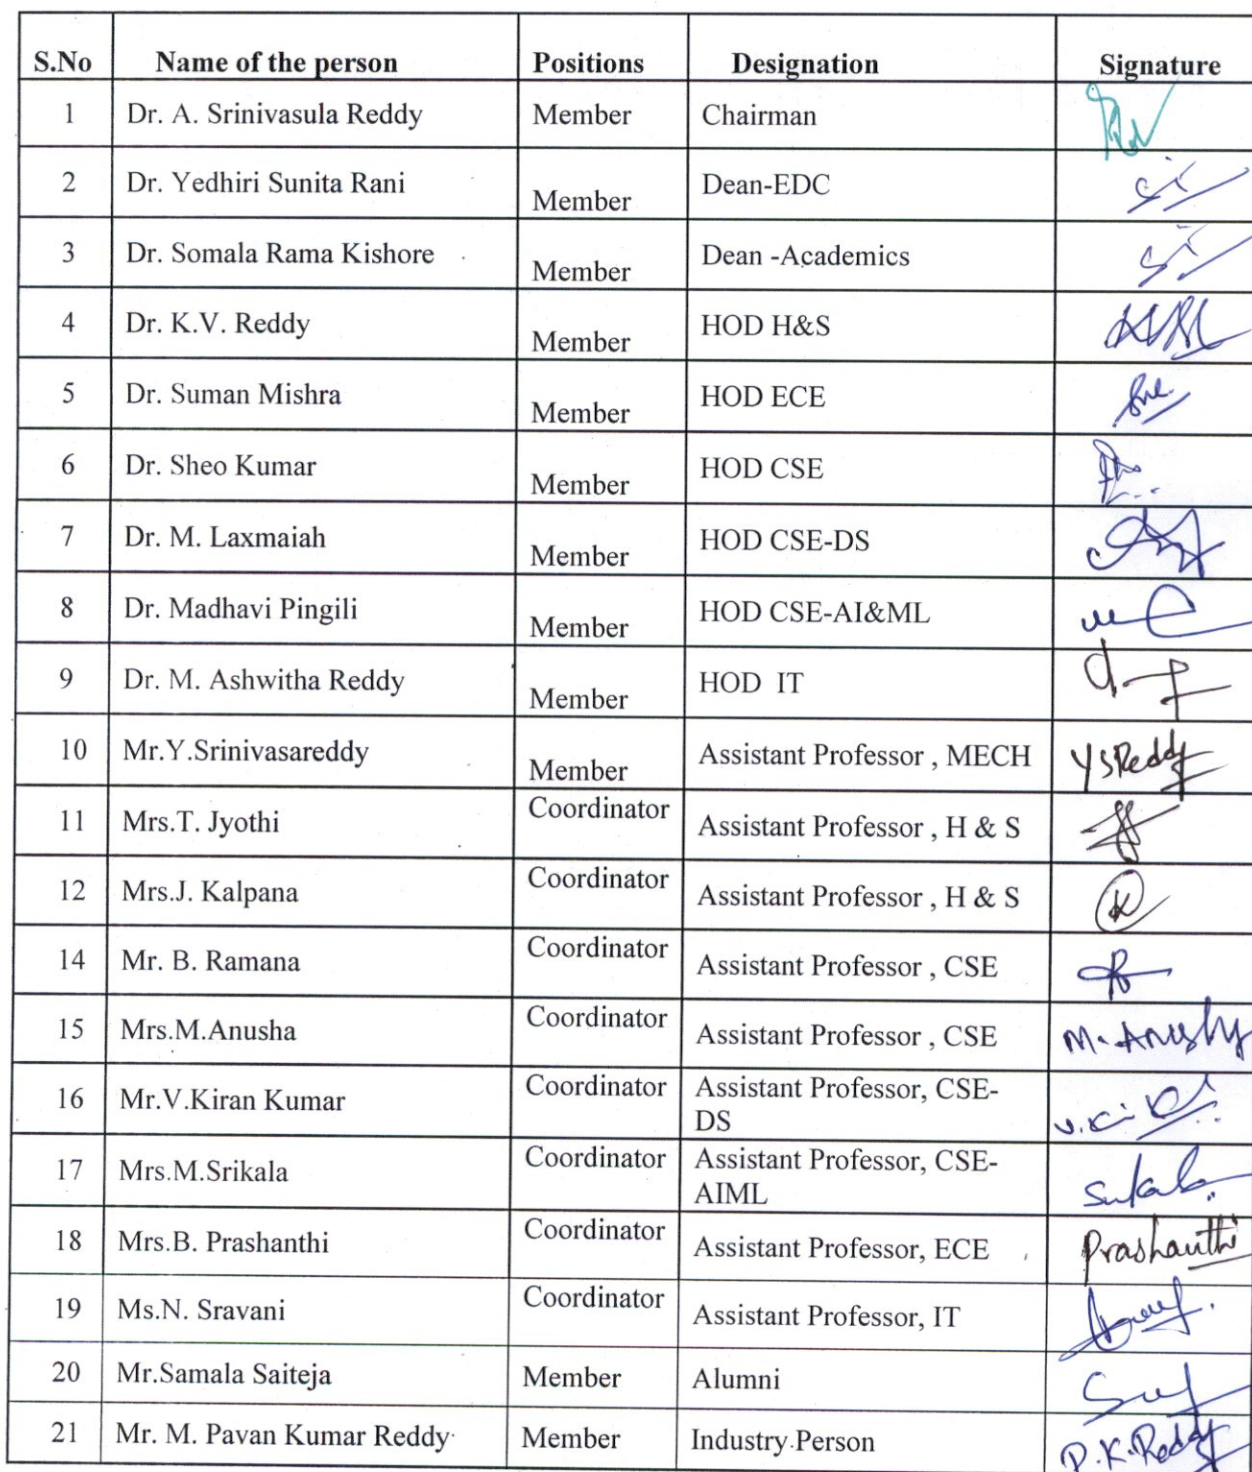 S.No Name of the person Positions Designation Signature
1 Dr. A. Srinivasula Reddy Member Chairman
2 Dr. Yedhiri Sunita Rani Member Dean-EDC
3 Dr. Somala Rama Kishore Member Dean -Academics
4 Dr. K.V. Reddy Member HOD H&S
5 Dr. Suman Mishra Member HOD ECE
6 Dr. Sheo Kumar Member HOD CSE
7 Dr. M. Laxmaiah Member HOD CSE-DS
8 Dr. Madhavi Pingili Member HOD CSE-AI&ML
9 Dr. M. Ashwitha Reddy Member HOD IT
10 Mr.Y.Srinivasareddy Member Assistant Professor , MECH YSReddy
11 Mrs.T. Jyothi Coordinator Assistant Professor , H & S
12 Mrs.J. Kalpana Coordinator Assistant Professor , H & S
14 Mr. B. Ramana Coordinator Assistant Professor , CSE
15 Mrs.M.Anusha Coordinator Assistant Professor , CSE M. Anusha
16 Mr.V.Kiran Kumar Coordinator Assistant Professor, CSE-
DS
17 Mrs.M.Srikala Coordinator Assistant Professor, CSE-
AIML
18 Mrs.B. Prashanthi Coordinator Assistant Professor, ECE Prashanthi
19 Ms.N. Sravani Coordinator Assistant Professor, IT
20 Mr.Samala Saiteja Member Alumni
21 Mr. M. Pavan Kumar Reddy Member Industry Person P.K.Reddy